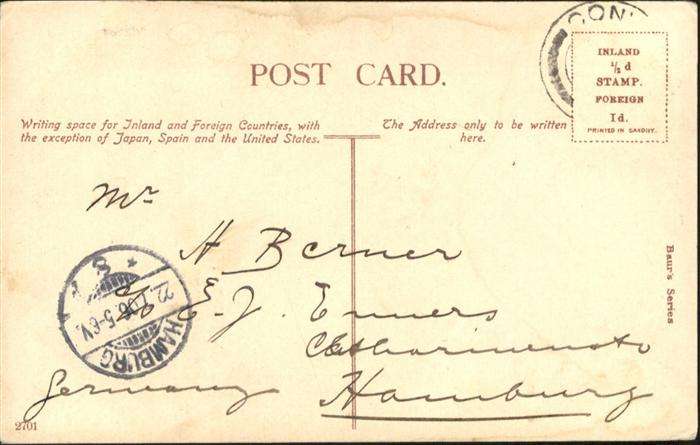 CON
POST CARD.
INLAND
½ d
STAMP.
FOREIGN
1d.
PRINTED IN SAXONY.
Writing space for Inland and Foreign Countries, with
the exception of Japan, Spain and the United States.
The Address only to be written
here.
Mr
H Berner
E. J. Enners
Hamburg
Germany
HAMBURG
5-6V
Baur's Series
2701